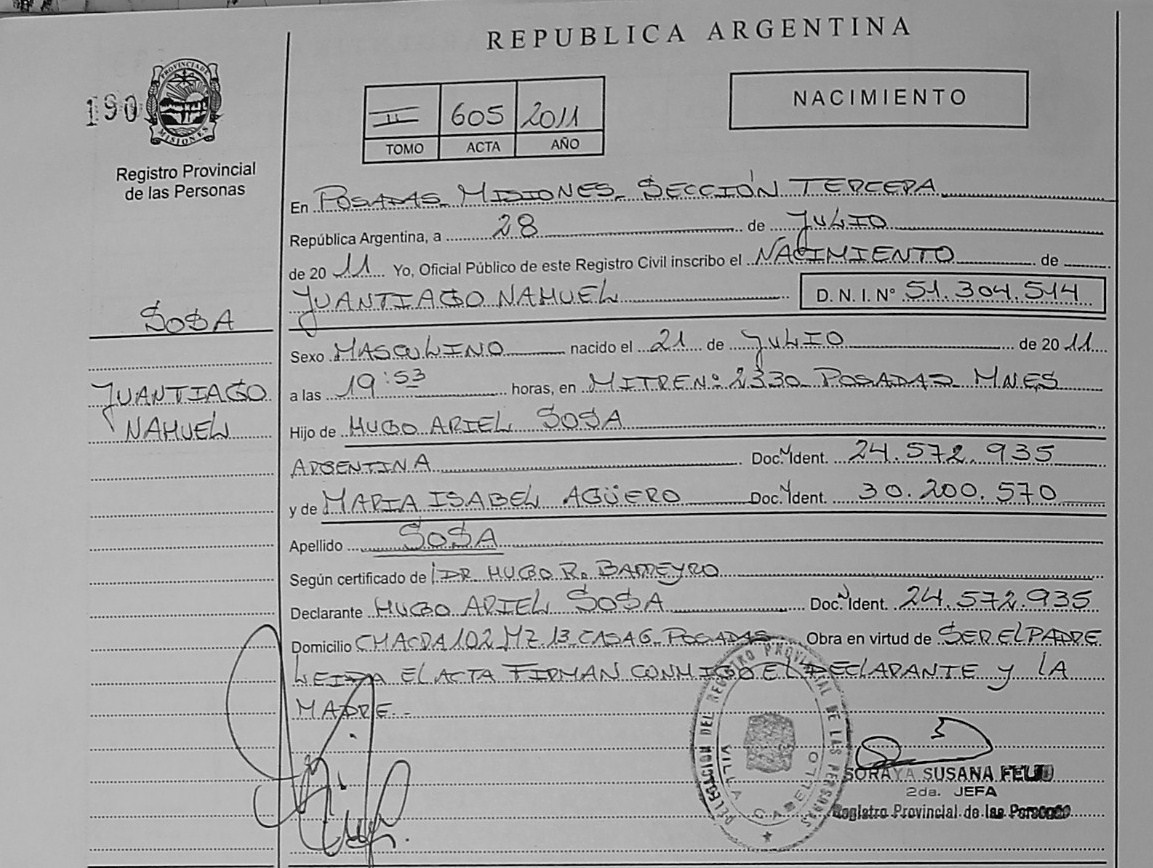 REPUBLICA ARGENTINA
190
PROVINCIA DE MISIONES
Registro Provincial
de las Personas
II 605 2011
TOMO ACTA AÑO
NACIMIENTO
En POSADAS MISIONES SECCIÓN TERCERA
República Argentina, a 28 de JULIO
de 2011 Yo, Oficial Público de este Registro Civil inscribo el NACIMIENTO de
JUANTIAGO NAHUEL D. N. I. N° 51.304.514
SOSA
Sexo MASCULINO nacido el 21 de JULIO de 2011
JUANTIAGO
NAHUEL
a las 19:53 horas, en MITRE N° 2330 POSADAS MNES
Hijo de HUGO ARIEL SOSA
ARGENTINA Doc. Ident. 24.572.935
y de MARIA ISABEL AGÜERO Doc. Ident. 30.200.570
Apellido SOSA
Según certificado de DR HUGO R. BARREYRO
Declarante HUGO ARIEL SOSA Doc. Ident. 24.572.935
Domicilio CHACRA 102 MZ 13 CASA 6 POSADAS Obra en virtud de SER EL PADRE
LEIDA EL ACTA FIRMAN CONMIGO EL DECLARANTE y LA
MADRE.-
DELEGACION DEL REGISTRO PROVINCIAL DE LAS PERSONAS
VILLA CABELLO
SORAYA SUSANA
2da. JEFA
Registro Provincial de las Personas